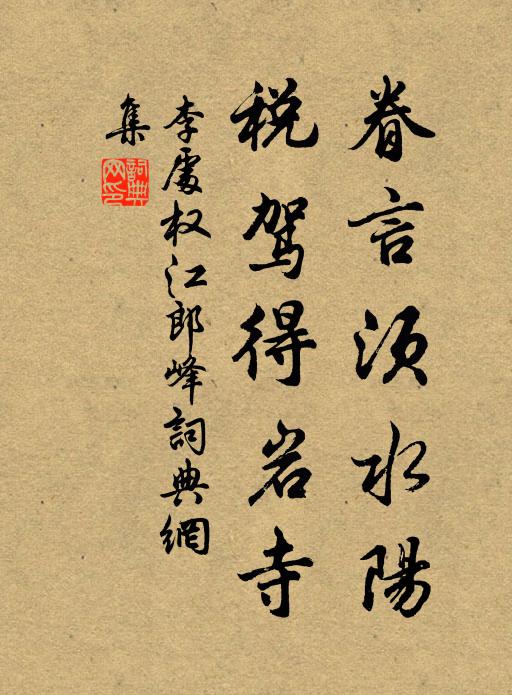 眷言須水陽
税駕得岩寺
李處权江郎峰詞典網
集
詞典网印